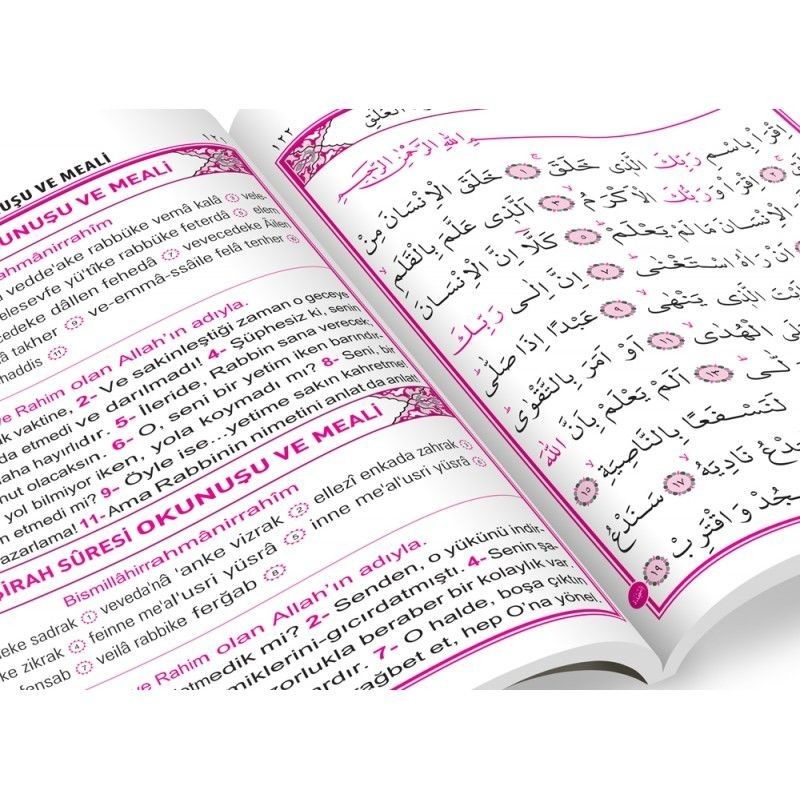 ١٢١
UŞU VE MEALİ
UNUŞU VE MEALİ
ahmânirrahîm
vedde'ake rabbüke vemâ kalâ ③ vele-
elesevfe yü'tîke rabbüke feterdâ ⑤ elem
cedeke dâllen fehedâ ⑦ vevecedeke Âilen
takher ⑨ ve-emmâ-ssâile felâ tenher ⑩
haddis ⑪
ve Rahim olan Allah'ın adıyla.
k vaktine, 2- Ve sakinleştiği zaman o geceye
da etmedi ve darılmadı! 4- Şüphesiz ki, senin
aha hayırlıdır. 5- İleride, Rabbin sana verecek;
nut olacaksın. 6- O, seni bir yetim iken barındır-
yol bilmiyor iken, yola koymadı mı? 8- Seni, bir
n etmedi mi? 9- Öyle ise...yetime sakın kahretme!
azarlama! 11- Ama Rabbinin nimetini anlat da anlat!
ŞİRAH SÛRESİ OKUNUŞU VE MEALİ
Bismillâhirrahmânirrahîm
leke sadrak ① veveda'nâ 'anke vizrak ② ellezî enkada zahrak ③
ke zikrak ④ feinne me'al'usri yüsrâ ⑤ inne me'al'usri yüsrâ ⑥
fensab ⑦ veilâ rabbike ferğab ⑧
ve Rahim olan Allah'ın adıyla.
etmedik mi? 2- Senden, o yükünü indir-
miklerini-gıcırdatmıştı. 4- Senin şa-
zorlukla beraber bir kolaylık var.
ardır. 7- O halde, boşa çıktın
ağbet et, hep O'na yönel.
١٢٢
الْعَلَقِ
اللّٰهِ الرَّحْمٰنِ الرَّحِيمِ
اِقْرَأْ بِاسْمِ رَبِّكَ الَّذِى خَلَقَ ۚ ﴿١﴾ خَلَقَ الْاِنْسَانَ مِنْ
﴿٢﴾ اِقْرَأْ وَرَبُّكَ الْاَكْرَمُ ۙ ﴿٣﴾ اَلَّذِى عَلَّمَ بِالْقَلَمِ ۙ
الْاِنْسَانَ مَا لَمْ يَعْلَمْ ۜ ﴿٥﴾ كَلَّا اِنَّ الْاِنْسَانَ
اَنْ رَاٰهُ اسْتَغْنٰى ۜ ﴿٧﴾ اِنَّ اِلٰى رَبِّكَ
الَّذِى يَنْهٰى ۙ ﴿٩﴾ عَبْدًا اِذَا صَلّٰى ۜ
الْهُدٰى ۙ ﴿١١﴾ اَوْ اَمَرَ بِالتَّقْوٰى ۜ
لّٰى ۜ ﴿١٣﴾ اَلَمْ يَعْلَمْ بِاَنَّ اللّٰهَ
لَنَسْفَعًا بِالنَّاصِيَةِ ۙ ﴿١٥﴾
نَادِيَهُ ۙ ﴿١٧﴾ سَنَدْعُ
جُدْ وَاقْتَرِبْ ﴿١٩﴾